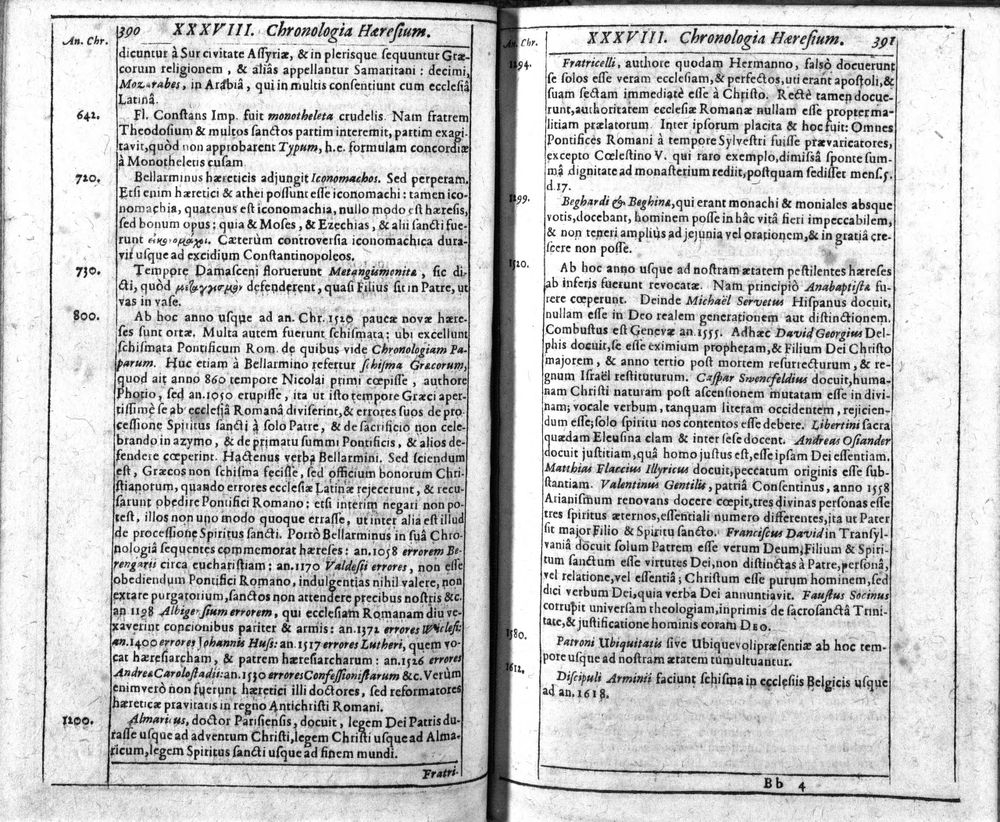 390 XXXVIII. Chronologia Hæresium.
An. Chr.
dicuntur à Sur civitate Assyriæ, & in plerisque sequuntur Græ-
corum religionem, & aliâs appellantur Samaritani: decimi,
Mozarabes, in Arabiâ, qui in multis consentiunt cum ecclesiâ
Latinâ.
642. Fl. Constans Imp. fuit monotheleta crudelis. Nam fratrem
Theodosium & multos sanctos partim interemit, partim exagi-
tavit, quòd non approbarent Typum, h.e. formulam concordiæ
à Monotheletis cusam.
720. Bellarminus hæreticis adjungit Iconomachos. Sed perperam.
Etsi enim hæretici & athei possunt esse iconomachi: tamen ico-
nomachia, quatenus est iconomachia, nullo modo est hæresis,
sed bonum opus; quia & Moses, & Ezechias, & alii sancti fue-
runt Cæterùm controversia iconomachica dura-
vit usque ad excidium Constantinopoleos.
730. Tempore Damasceni floruerunt Metangismonitæ, sic di-
cti, quòd defenderent, quasi Filius sit in Patre, ut
vas in vase.
800. Ab hoc anno usque ad an. Chr. 1520 paucæ novæ hære-
ses sunt ortæ. Multa autem fuerunt schismata; ubi excellunt
schismata Pontificum Rom. de quibus vide Chronologiam Pa-
parum. Huc etiam à Bellarmino refertur schisma Græcorum,
quod ait anno 860 tempore Nicolai primi cœpisse, authore
Photio, sed an. 1050 erupisse, ita ut isto tempore Græci aper-
tissimè se ab ecclesiâ Romanâ diviserint, & errores suos de pro-
cessione Spiritus sancti à solo Patre, & de sacrificio non cele-
brando in azymo, & de primatu summi Pontificis, & alios de-
fendere cœperint. Hactenus verba Bellarmini. Sed sciendum
est, Græcos non schisma fecisse, sed officium bonorum Chri-
stianorum, quando errores ecclesiæ Latinæ rejecerunt, & recu-
sarunt obedire Pontifici Romano; etsi interim negari non po-
test, illos non uno modo quoque errasse, ut inter alia est illud
de processione Spiritus sancti. Porrò Bellarminus in suâ Chro-
nologiâ sequentes commemorat hæreses: an. 1058 errorem Be-
rengarii circa eucharistiam: an. 1170 Valdesii errores, non esse
obediendum Pontifici Romano, indulgentias nihil valere, non
extare purgatorium, sanctos non attendere precibus nostris &c.
an 1198 Albigensium errorem, qui ecclesiam Romanam diu ve-
xaverint concionibus pariter & armis: an. 1372 errores Wiclefi:
an. 1400 errores Johannis Huss: an. 1517 errores Lutheri, quem vo-
cat hæresiarcham, & patrem hæresiarcharum: an. 1526 errores
Andreæ Carolostadii: an. 1530 errores Confessionistarum &c. Verùm
enimverò non fuerunt hæretici illi doctores, sed reformatores
hæreticæ pravitatis in regno Antichristi Romani.
1200. Almaricus, doctor Parisiensis, docuit, legem Dei Patris du-
rasse usque ad adventum Christi, legem Christi usque ad Alma-
ricum, legem Spiritus sancti usque ad finem mundi.
Fratri-
XXXVIII. Chronologia Hæresium. 391
An. Chr.
1294. Fratricelli, authore quodam Hermanno, falsò docuerunt
se solos esse veram ecclesiam, & perfectos, uti erant apostoli, &
suam sectam immediatè esse à Christo. Rectè tamen docue-
runt, authoritatem ecclesiæ Romanæ nullam esse propter ma-
litiam prælatorum. Inter ipsorum placita & hoc fuit: Omnes
Pontifices Romani à tempore Sylvestri fuisse prævaricatores,
excepto Cœlestino V. qui raro exemplo, dimissâ sponte sum-
mâ dignitate ad monasterium rediit, postquam sedisset mens. 5.
d. 17.
1299. Beghardi & Beghinæ, qui erant monachi & moniales absque
votis, docebant, hominem posse in hâc vitâ fieri impeccabilem,
& non teneri ampliùs ad jejunia vel orationem, & in gratiâ cre-
scere non posse.
1520. Ab hoc anno usque ad nostram ætatem pestilentes hæreses
ab inferis fuerunt revocatæ. Nam principiò Anabaptistæ fu-
rere cœperunt. Deinde Michaël Servetus Hispanus docuit,
nullam esse in Deo realem generationem aut distinctionem.
Combustus est Genevæ an. 1555. Adhæc David Georgius Del-
phis docuit, se esse eximium prophetam, & Filium Dei Christo
majorem, & anno tertio post mortem resurrecturum, & re-
gnum Israël restituturum. Caspar Swencfeldius docuit, huma-
nam Christi naturam post ascensionem mutatam esse in divi-
nam; vocale verbum, tanquam literam occidentem, rejicien-
dum esse; solo spiritu nos contentos esse debere. Libertini sacra
quædam Eleusina clam & inter sese docent. Andreas Osiander
docuit justitiam, quâ homo justus est, esse ipsam Dei essentiam.
Matthias Flaccius Illyricus docuit, peccatum originis esse sub-
stantiam. Valentinus Gentilis, patriâ Consentinus, anno 1558
Arianismum renovans docere cœpit, tres divinas personas esse
tres spiritus æternos, essentiali numero differentes, ita ut Pater
sit major Filio & Spiritu sancto. Franciscus David in Transyl-
vaniâ docuit solum Patrem esse verum Deum, Filium & Spiri-
tum sanctum esse virtutes Dei, non distinctas à Patre, personâ,
vel relatione, vel essentiâ; Christum esse purum hominem, sed
dici verbum Dei, quia verba Dei annuntiavit. Faustus Socinus
corrupit universam theologiam, inprimis de sacrosanctâ Trini-
tate, & justificatione hominis coram DEO.
1580. Patroni Ubiquitatis sive Ubiquevolipræsentiæ ab hoc tem-
pore usque ad nostram ætatem tumultuantur.
1612. Discipuli Arminii faciunt schisma in ecclesiis Belgicis usque
ad an. 1618.
Bb 4